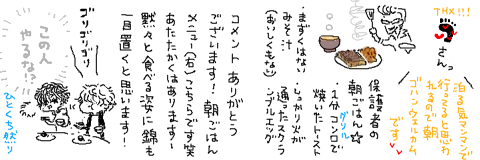 THX!!!
さんっ
泊る気マンマンで
行ってると思わ
れるので朝
ゴハンウェルカム
です
保護者の
朝ごはん☆
コンロで
グリル
焼いたトースト
・しっかり火が
通ったスクラ
ンブルエッグ
・まずくはない
みそ汁
(おいしくもない)
コメントありがとう
ございます!朝ごはん
メニュー(右)こちらです笑
あたたかくはあります〜
黙々と食べる姿に錦も
一目置くと思います!
ゴリゴリゴリ
この人
やるな!?
ひとくち然り